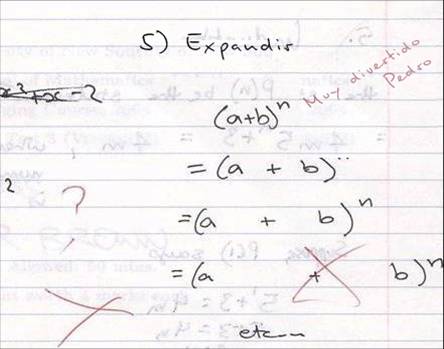 5) Expandir
Muy divertido
Pedro
x³+x-2
(a+b)ⁿ
= (a + b)ⁿ
2
?
=(a + b)ⁿ
=(a + b)ⁿ
etc...